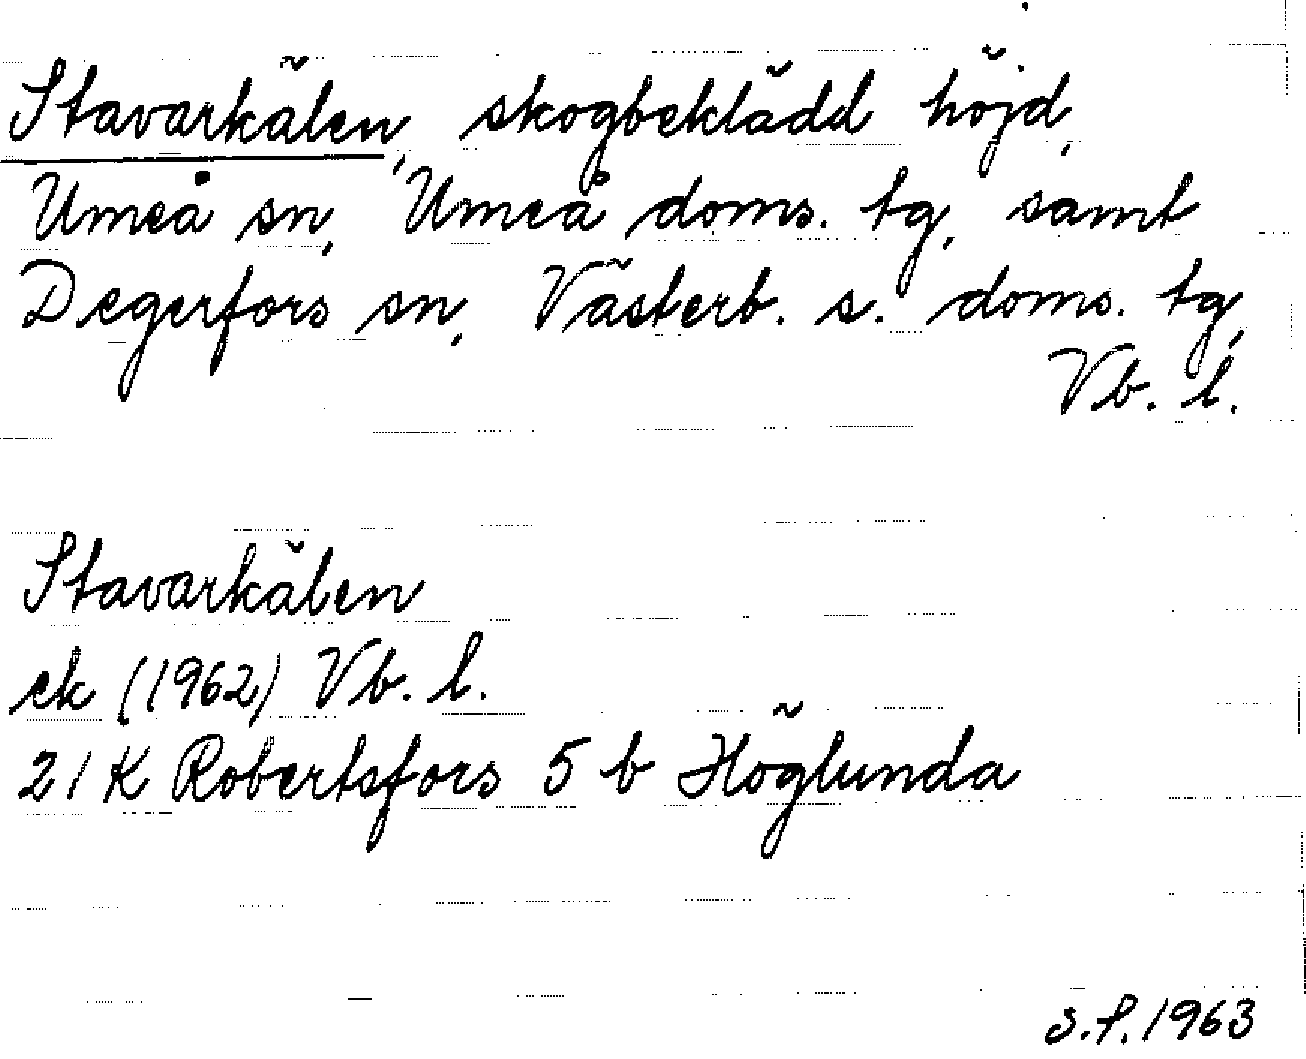 Stavarkälen, skogbeklädd höjd,
Umeå sn, Umeå doms. tg, samt
Degerfors sn, Västerb. s. doms. tg,
Vb. l.
Stavarkälen
ek (1962) Vb. l.
21 K Robertsfors 5 b Höglunda
S.P. 1963